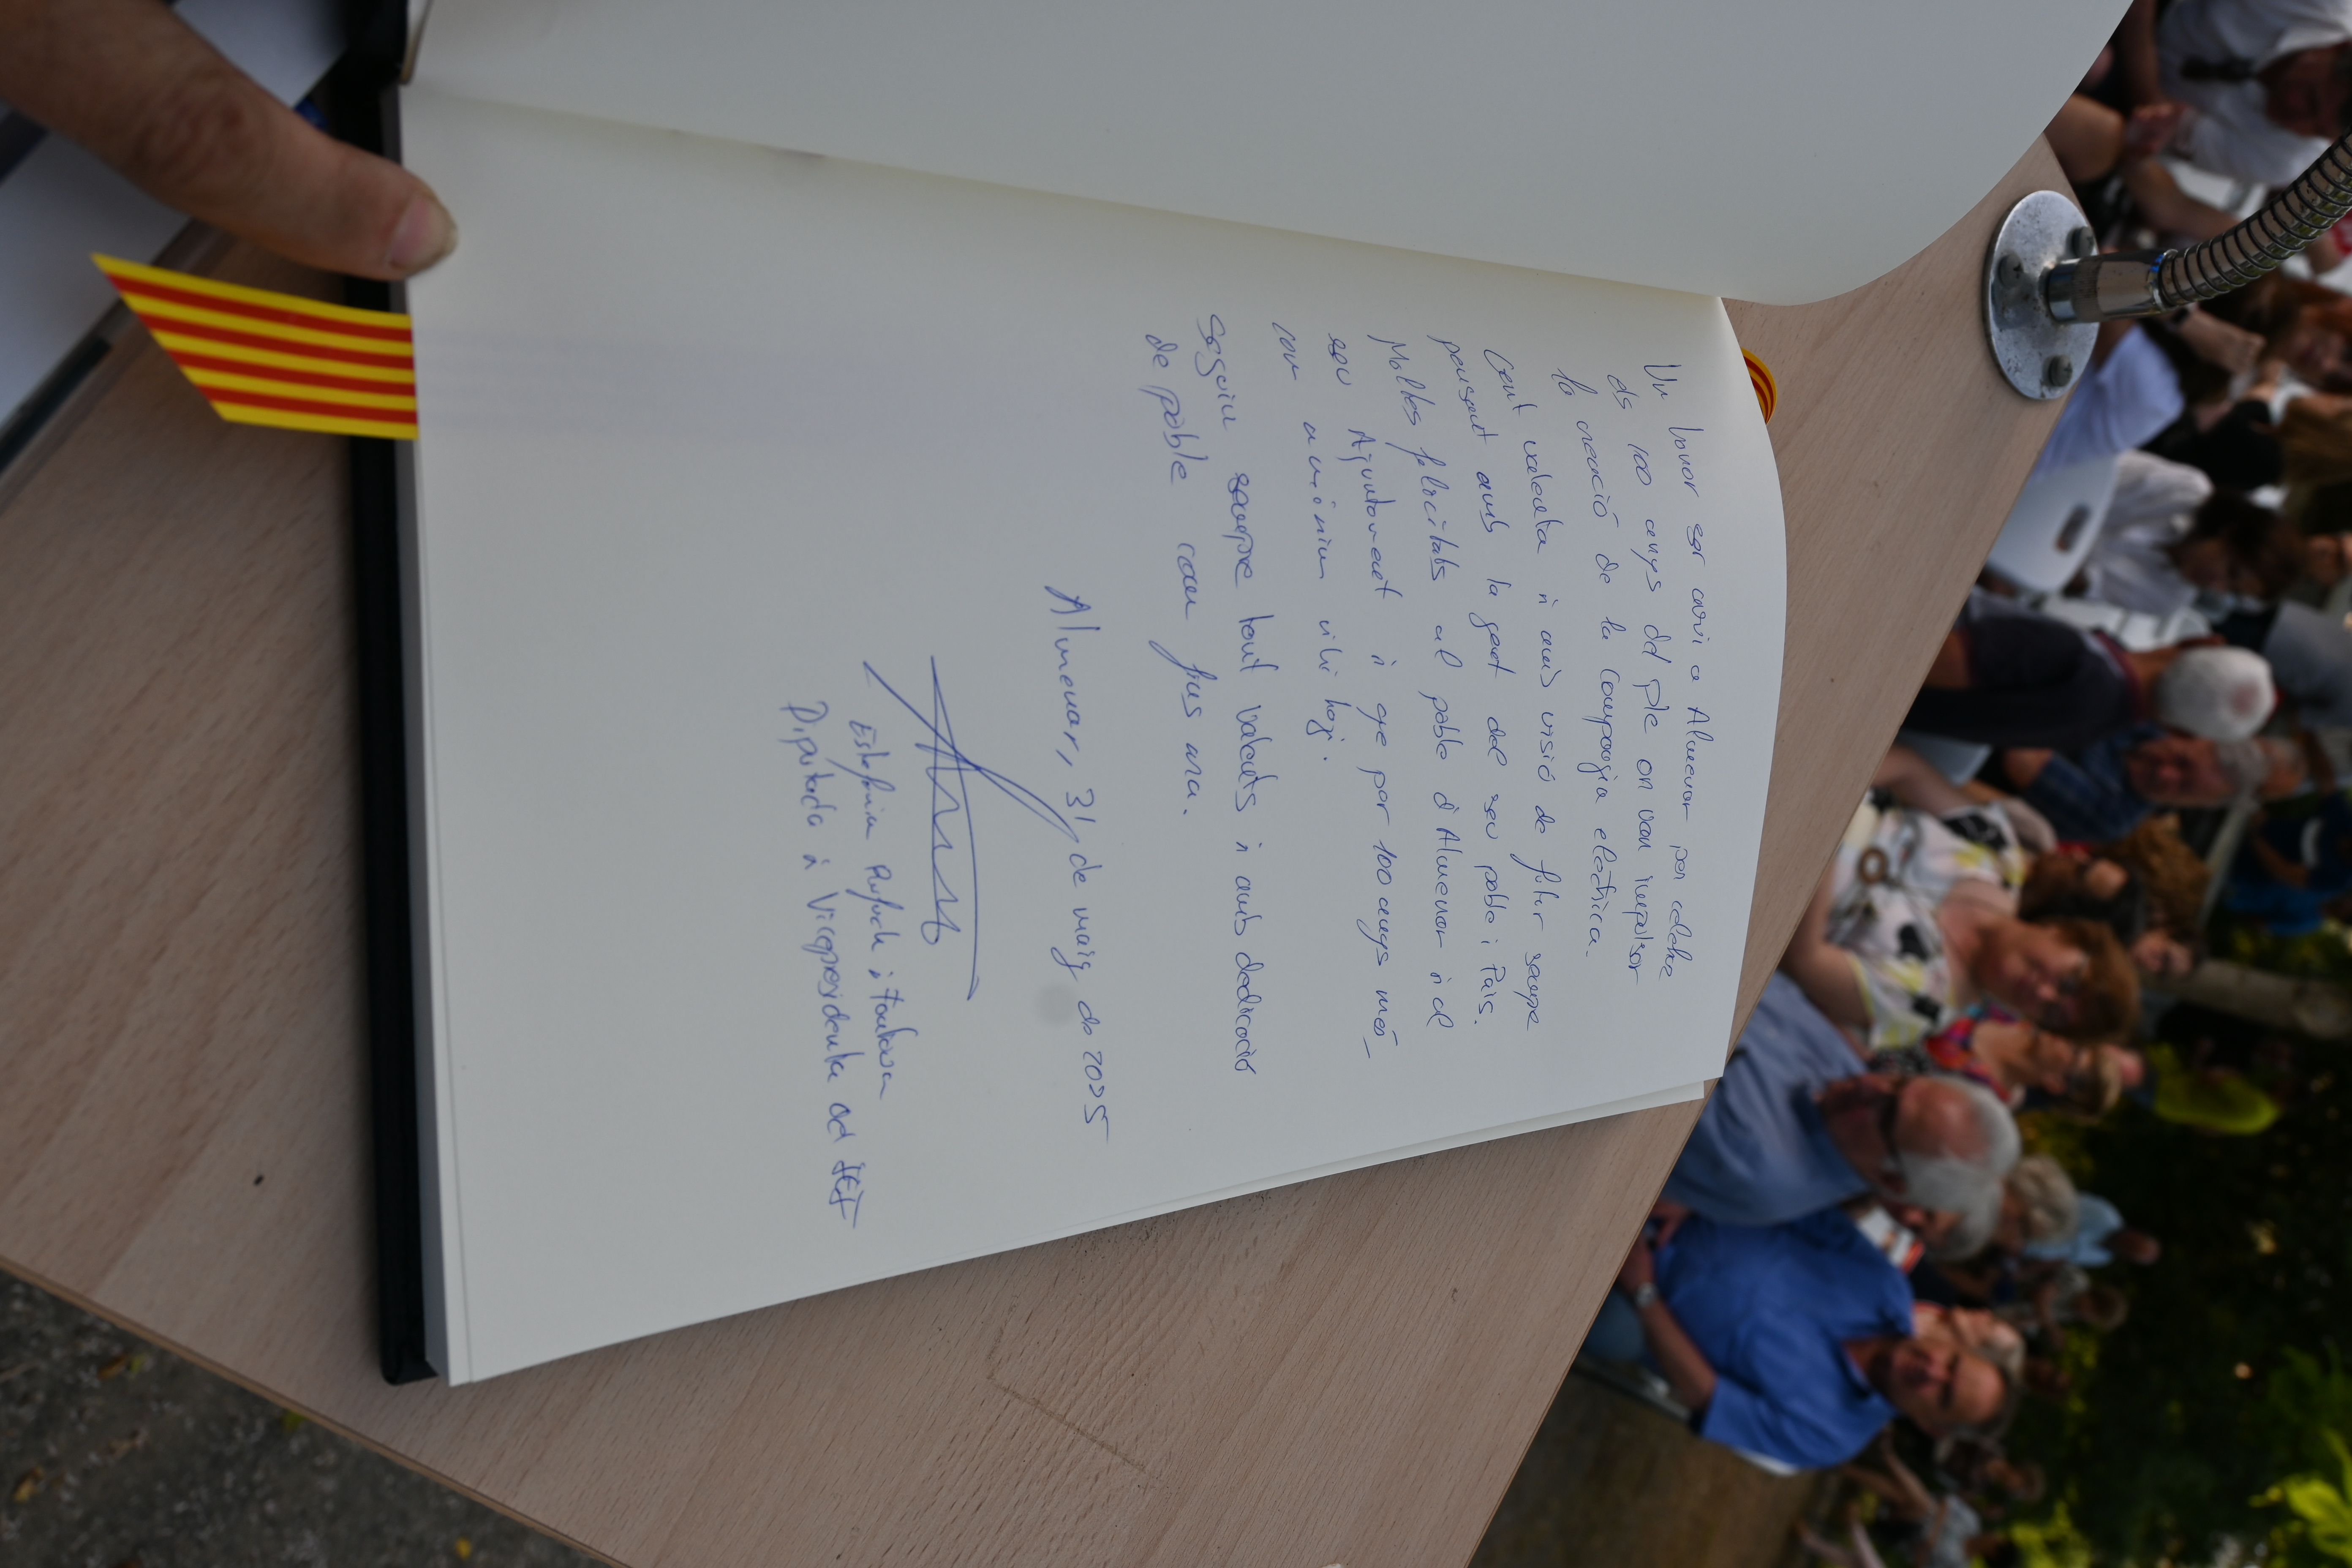 Un honor ser avui a Almenar per celebrar
els 100 anys del ple on van impulsar
la creació de la Companyia elèctrica.
Gent valenta i amb visió de futur sempre
pensant amb la gent del seu poble i País.
Moltes felicitats al poble d'Almenar i al
seu Ajuntament i que per 100 anys més
com a mínim vilu hagi.
Seguiu sempre tant valents i amb dedicació
de poble com fins ara.
Almenar, 31 de maig de 2025
Estefania Rufach i Fontova
Diputada i Vicepresidenta del IEI